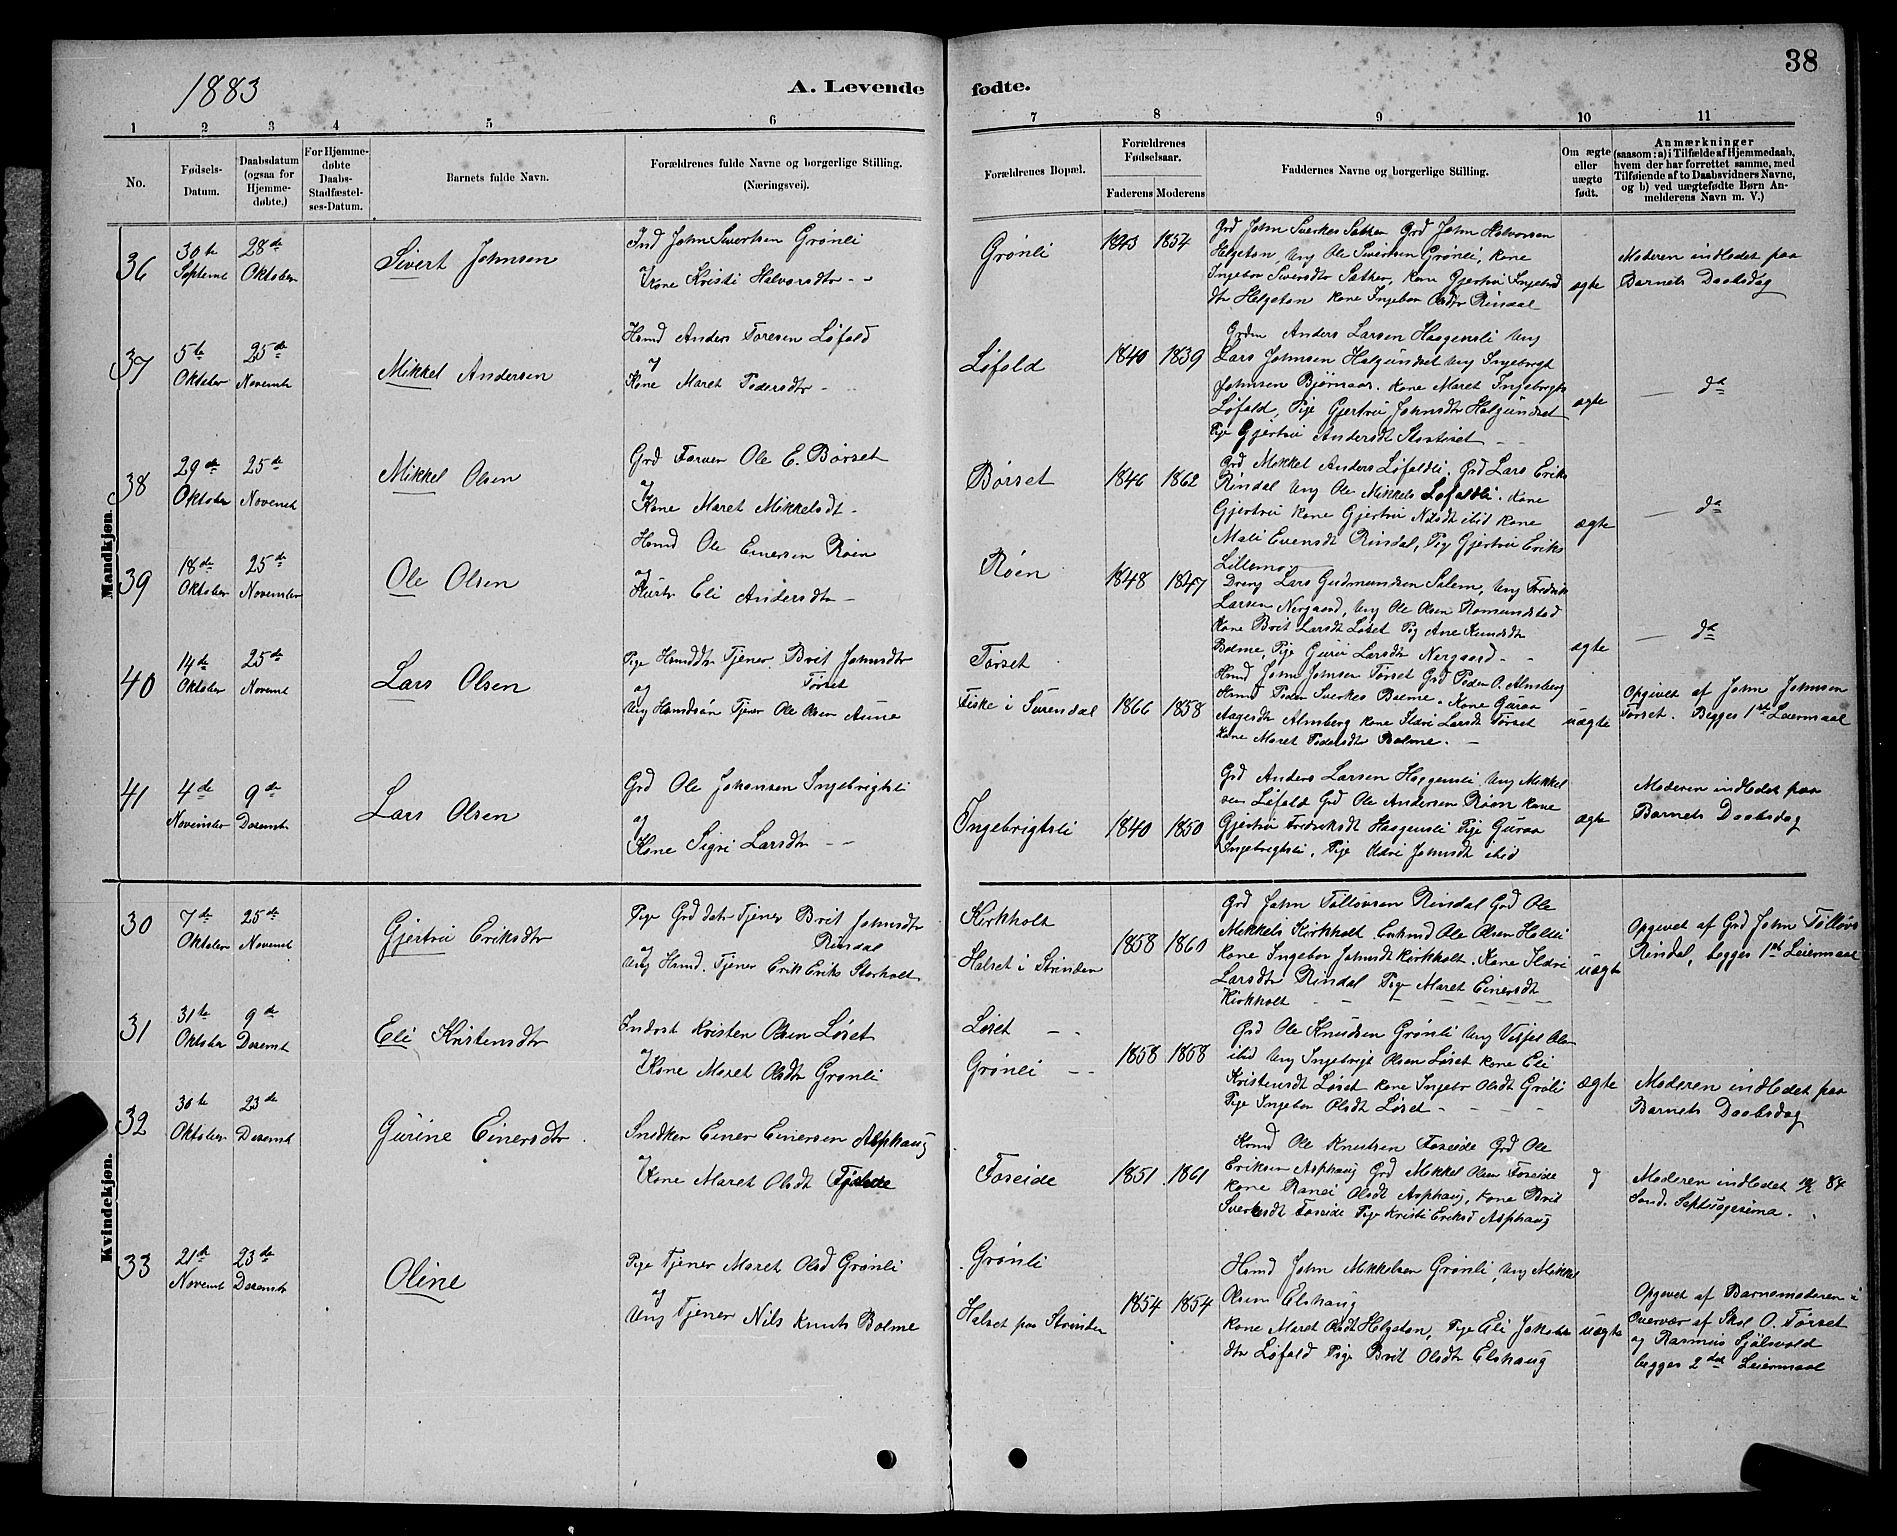 1883
A. Levende
fødte.
38
1 2 3 4 5 6 7 8 9 10 11
No.
Fødsels-Datum.
Daabsdatum (ogsaa for Hjemme-døbte.)
For Hjemme-døbte Daabs-Stadfæstel-ses-Datum.
Barnets fulde Navn.
Forældrenes fulde Navne og borgerlige Stilling.
(Næringsvei).
Forældrenes Bopæl.
Forældrenes Fødselsaar.
Faderens Moderens
Faddernes Navne og borgerlige Stilling.
Om ægte eller uægte født.
Anmærkninger
(saasom: a) i Tilfælde af Hjemmedaab, hvem der har forrettet samme, med Tilføiende af to Daabsvidners Navne, og b) ved uægtefødte Børn An-melderens Navn m. V.)
Mandkjøn.
36
30te Septemt
28de Oktober
Sivert Johnsen
Ind John Sivertsen Grønli
Kone Kristi Halvorsdtr - -
Grønli
1843 1854
Grd John Sverkes Sæther Grd John Halvorsen
Helgetan, Ung Ole Sivertsen Grønli, Kone
Ingebor Siversdtr Sæther, Kone Gjertru Ingebrd
dtr Helgetan Kone Ingebor Olsdtr Rindal
ægte
Moderen indledet paa
Barnets Daabsdag
37
5te Oktober
25de Novemt
Mikkel Andersen
Hsmd Anders Toresen Løfald
og
Kone Maret Pedersdtr - -
Løfald
1840 1839
Grdm Anders Larsen Haagensli Ung
Lars Johnsen Halgundset Ung Ingebrigt
Johnsen Bjørnaas. Kone Maret Ingebrigts
Løfald, Pige Gjertru Johnsdtr Halgundset
Pige Gjertru Andersdt Stortiset - -
ægte
da
38
29de Oktober
25de Novemt
Mikkel Olsen
Grd Farver Ole E. Børset
og
Kone Maret Mikkelsdt -
Børset
1846 1862
Grd Mikkel Anders Løfaldli. Grd Lars Eriks
Rindal Ung Ole Mikkels Løfaldli. Kone
Gjertru Kone Gjertru Nilsdt ibid Kone
Mali Evensdt Rindal, Pig Gjertru Eriks
Lillemo
ægte
da
39
18de Oktober
25de November
Ole Olsen
Hsmd Ole Einersen Røen
og
Hustr Eli Andersdtr -
Røen
1848 1847
Dreng Lars Gudmundsen Salem, Ung Fredrik
Larsen Nergaard, Ung Ole Olsen Romundstad
Kone Brit Larsdt Løset Pig Ane Knudsdtr
Bolme, Pige Guru Larsdtr Nergaard - -
ægte
da
40
14de Oktober
25de Novemt
Lars Olsen
Pige Hsmddtr Tjener Brit Johnsdtr
Tørset
og
Ung Hsmdsøn Tjener Ole Olsen Aune
Tørset
Fiske i Surendal
1866 1858
Hsmd John Johnsen Tørset Grd Peder O. Almberg
Hsmd Peder Sverkes Bolme. Kone Guraa
Aagesdtr Almberg Kone Ildri Larsdt Tørset
Kone Maret Pedersdtr Bolme. -
uægte
Opgivet af John Johnsen
Tørset. Begges 1ste Leiermaal
41
4de November
9de Desembt
Lars Olsen
Grd Ole Johansen Ingebrigtsli
og
Kone Sigri Larsdtr - -
Ingebrigtsli
1840 1850
Grd Anders Larsen Haggensli Ung Mikkel
sen Løfald Grd Ole Andersen Røen Kone
Gjertru Fredriksdt Haagensli Pige Guraa
Ingebrigtsli. Pige Ildri Johnsdt ibid
ægte
Moderen indledet paa
Barnets Daabsdag
Kvindekjøn.
30
7de Oktober
25de Novemt
Gjertru Eriksdtr
Pige Grd datr Tjener Brit Johnsdtr
Rindal
og
Ung Hsmd. Tjener Erik Eriks Storholt
Kirkholt
Halset i Strinden
1858 1860
Grd John Tølløvsen Rindal Grd Ole
Mikkels Kirkholt Ole Olsen Holtli
Kone Ingebor Johnsdt Kirkholt. Kone Ildri
Larsdtr Rindal Pige Maret Einersdtr
Kirkholt - - - - -
uægte
Opgivet af Grd John Tølløvs
Rindal, begges 1ste Leiermaal
31
31te Oktober
9de Desemt
Eli Kristensdtr
Inderst Kristen Olsen Løset
Kone Maret Olsdtr Grønli
Løset - -
Grønli - -
1858 1858
Grd Ole Knudsen Grønli Ung Ole
ibid Ung Ingebrigt Olsen Løset Kone Eli
Kristensdt Løset Kone Ingebr Olsdt Grøli
Pige Ingebor Olsdt Løset - - - -
ægte
Moderen indledet paa
Barnets Daabsdag
32
30te Oktober
23de Desemt
Gurine Einersdtr
Snedker Einer Einersen Asphaug
Kone Maret Olsdt
Foseide
1851 1861
Hsmd Ole Knutsen Foseide Grd Ole
Eriksen Asphaug Grd Mikkel Olsen Foseide
Kone Ranei Olsdt Asphaug, Kone Brit
Sverksdt Foseide Pige Kristi Eriksd Asphaug
Moderen indledet 10/2 84
Sond. Septuagesima.
33
21de Novemt
23de Desemtr
Oline
Pige Tjener Maret Olsd Grønli
og
Ung Tjener Nils Knuts Bolme
Grønli
Halset paa Strinden
1854 1854
Hsmd John Mikkelsen Grønli, Ung Mikkel
Olsen Elshaug
Kone Maret Olsdt Helgetan, Pige Eli Jakobs
dtr Løfald Pige Brit Olsdtr Elshaug
uægte
Opgivet af Barnemoderen i
Overvær af Skol O. Tørset
og Rasmus Sjølsvold
begges 2det Leiermaal